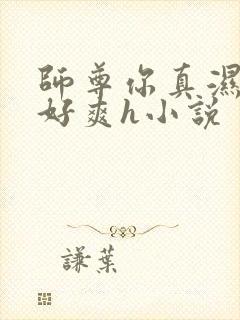 師尊你真濕
好爽h小說
謙葉